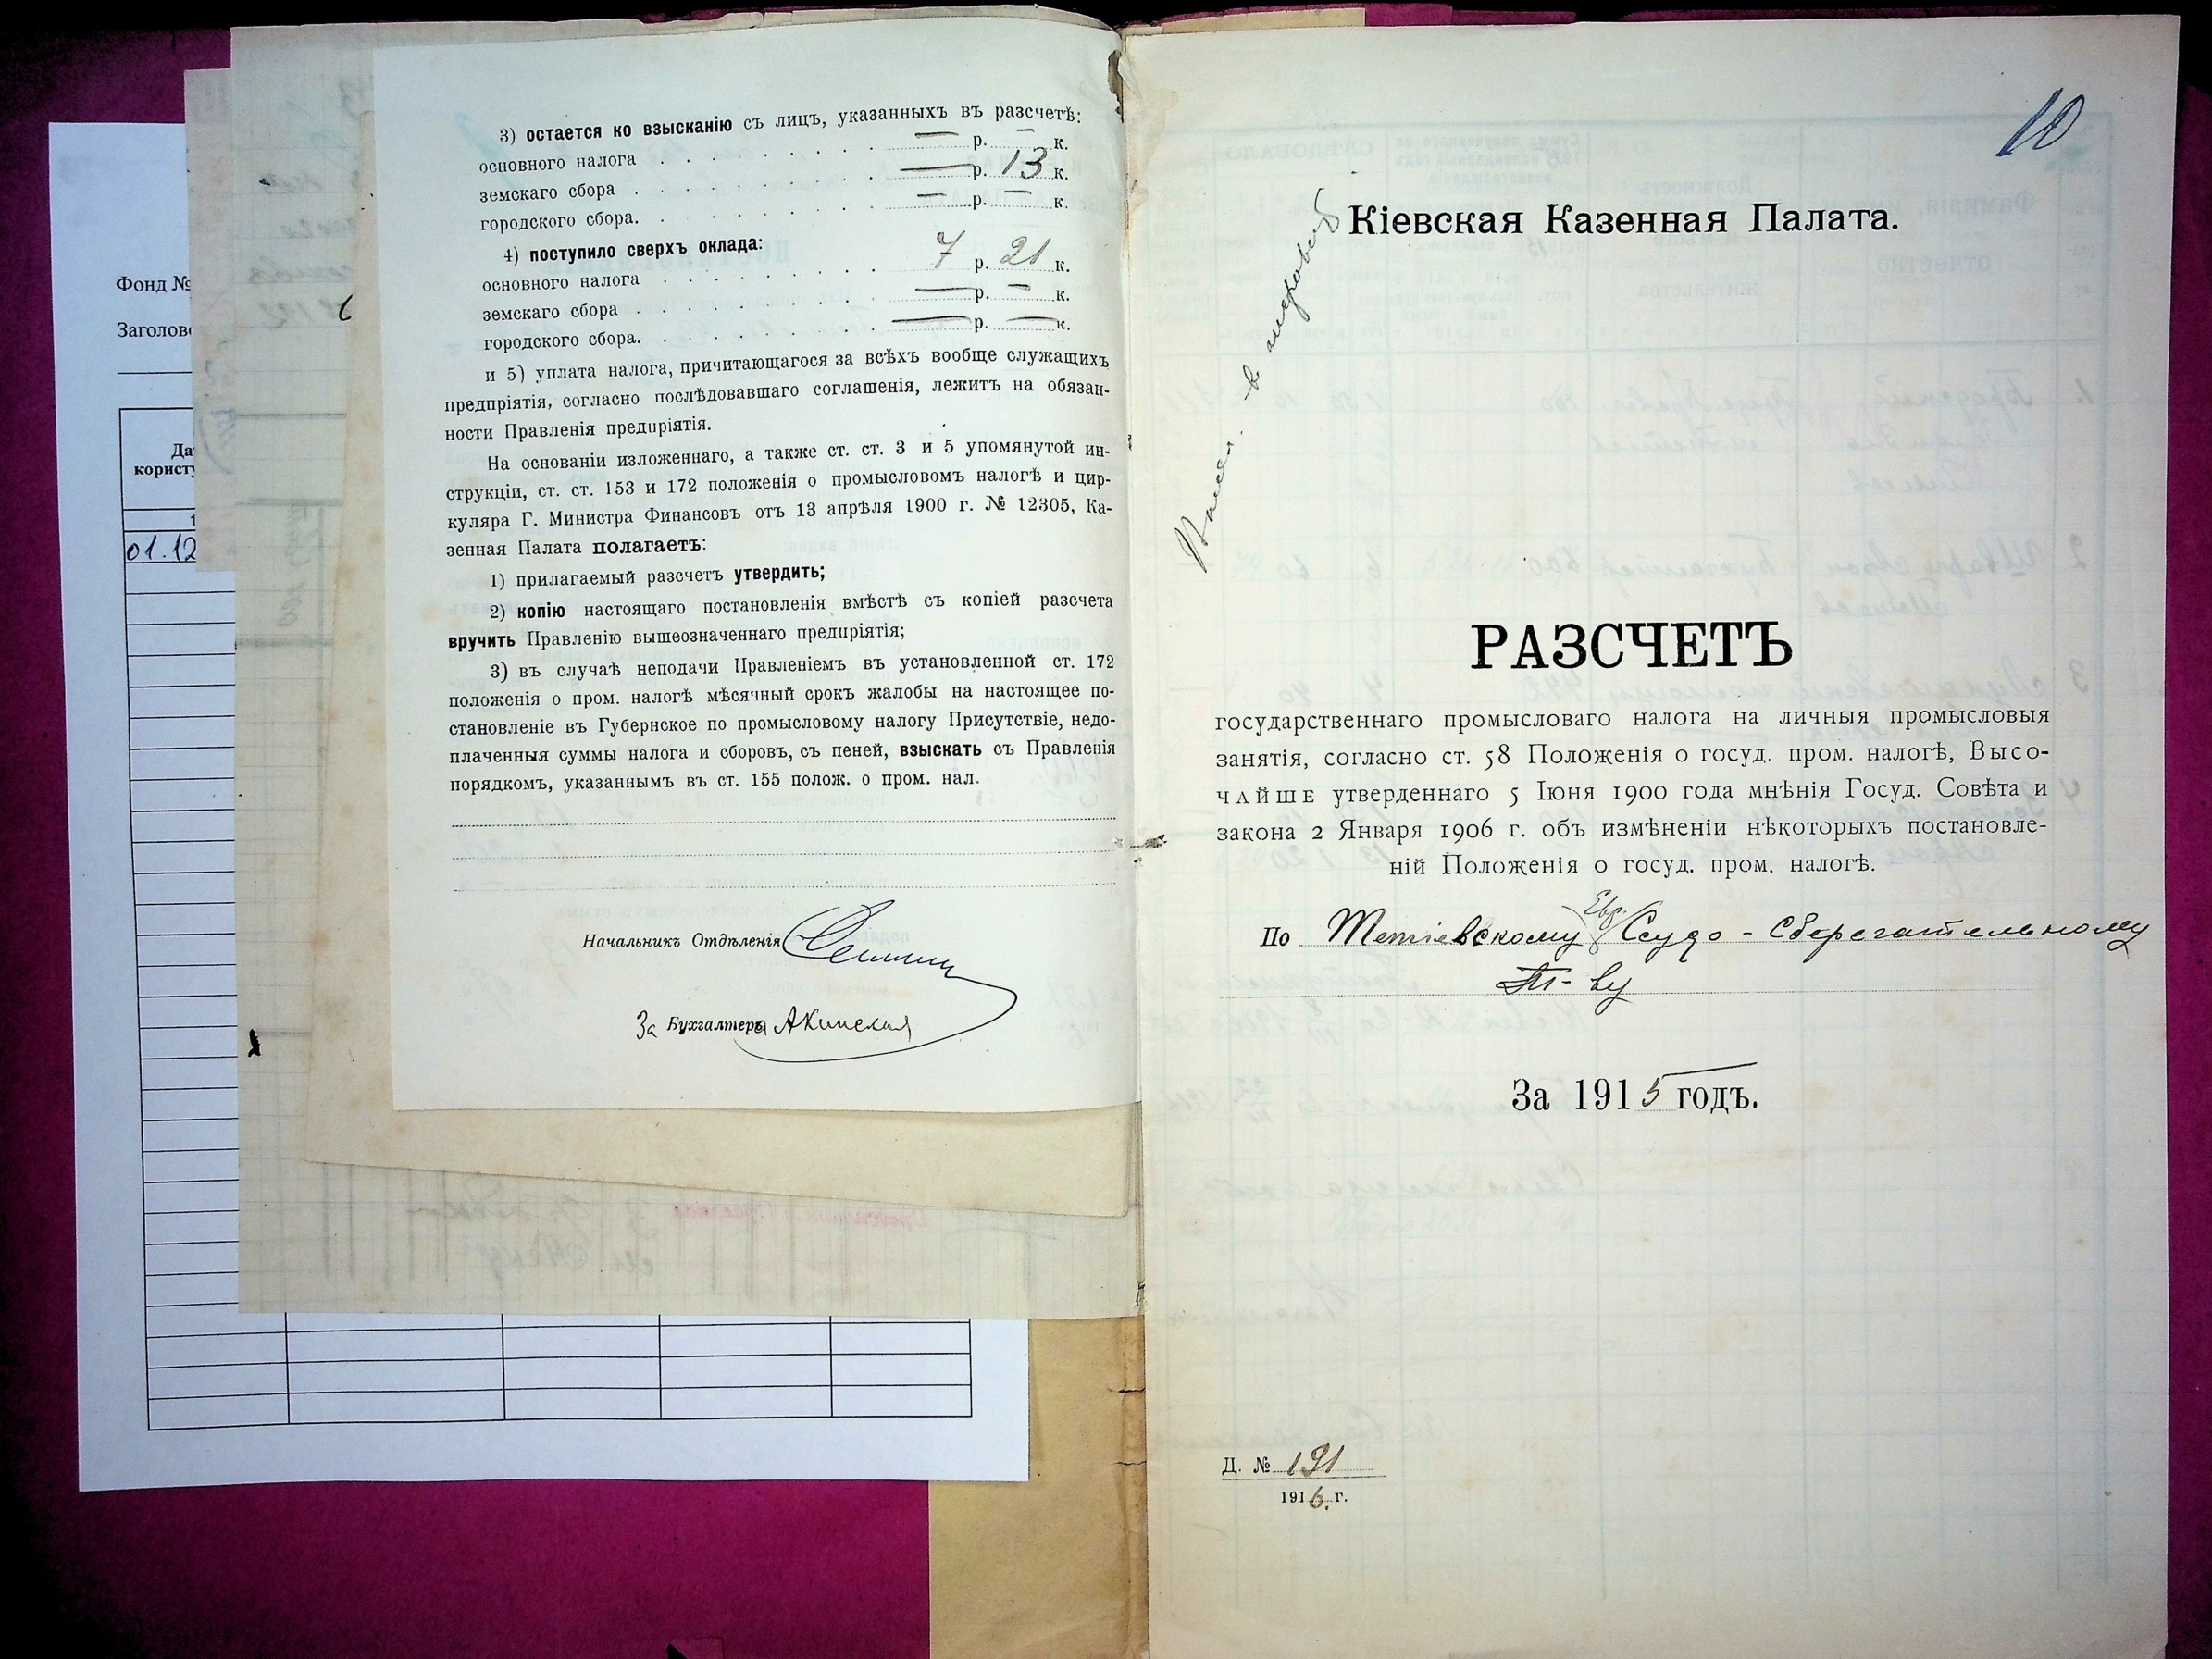 Фонд №
Заголово
Да
користу
1
01.12
3) остается ко взысканію съ лицъ, указанныхъ въ разсчетѣ:
основного налога . . . . . . . . — р. — к.
земскаго сбора . . . . . . . . — р. 13 к.
городского сбора. . . . . . . . — р. — к.
4) поступило сверхъ оклада:
основного налога . . . . . . . . 7 р. 21 к.
земскаго сбора . . . . . . . . — р. — к.
городского сбора. . . . . . . . — р. — к.
и 5) уплата налога, причитающагося за всѣхъ вообще служащихъ
предпріятія, согласно послѣдовавшаго соглашенія, лежитъ на обязан-
ности Правленія предпріятія.
На основаніи изложеннаго, а также ст. ст. 3 и 5 упомянутой ин-
струкціи, ст. ст. 153 и 172 положенія о промысловомъ налогѣ и цир-
куляра Г. Министра Финансовъ отъ 13 апрѣля 1900 г. № 12305, Ка-
зенная Палата полагаетъ:
1) прилагаемый разсчетъ утвердить;
2) копію настоящаго постановленія вмѣстѣ съ копіей разсчета
вручить Правленію вышеозначеннаго предпріятія;
3) въ случаѣ неподачи Правленіемъ въ установленной ст. 172
положенія о пром. налогѣ мѣсячный срокъ жалобы на настоящее по-
становленіе въ Губернское по промысловому налогу Присутствіе, недо-
плаченныя суммы налога и сборовъ, съ пеней, взыскать съ Правленія
порядкомъ, указаннымъ въ ст. 155 полож. о пром. нал.
Начальникъ Отдѣленія
За Бухгалтера
10
Кіевская Казенная Палата.
РАЗСЧЕТЪ
государственнаго промысловаго налога на личныя промысловыя
занятія, согласно ст. 58 Положенія о госуд. пром. налогѣ, Высо-
чайше утвержденнаго 5 Іюня 1900 года мнѣнія Госуд. Совѣта и
закона 2 Января 1906 г. объ измѣненіи нѣкоторыхъ постановле-
ній Положенія о госуд. пром. налогѣ.
По Тетіевскому Евр. Ссудо-Сберегательному
Т-ву
За 1915 годъ.
Д. № 191
1916 г.